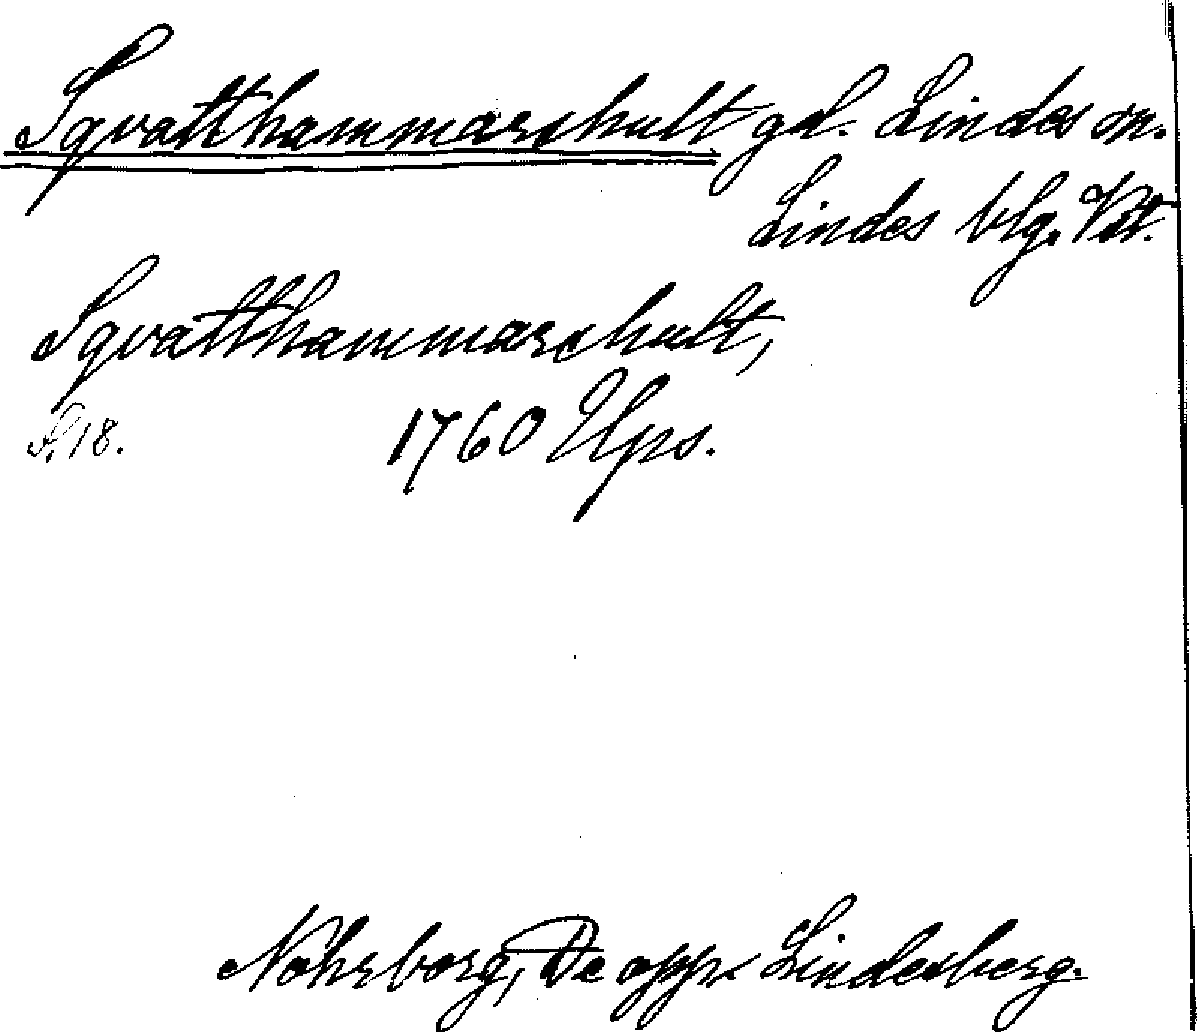 Sqvatthammarschult gd. Lindes sn.
Lindes blg. Vstm.
Sqvatthammarschult,
S. 18. 1760 Ups.
Nohrborg, De opp. Lindesberg.